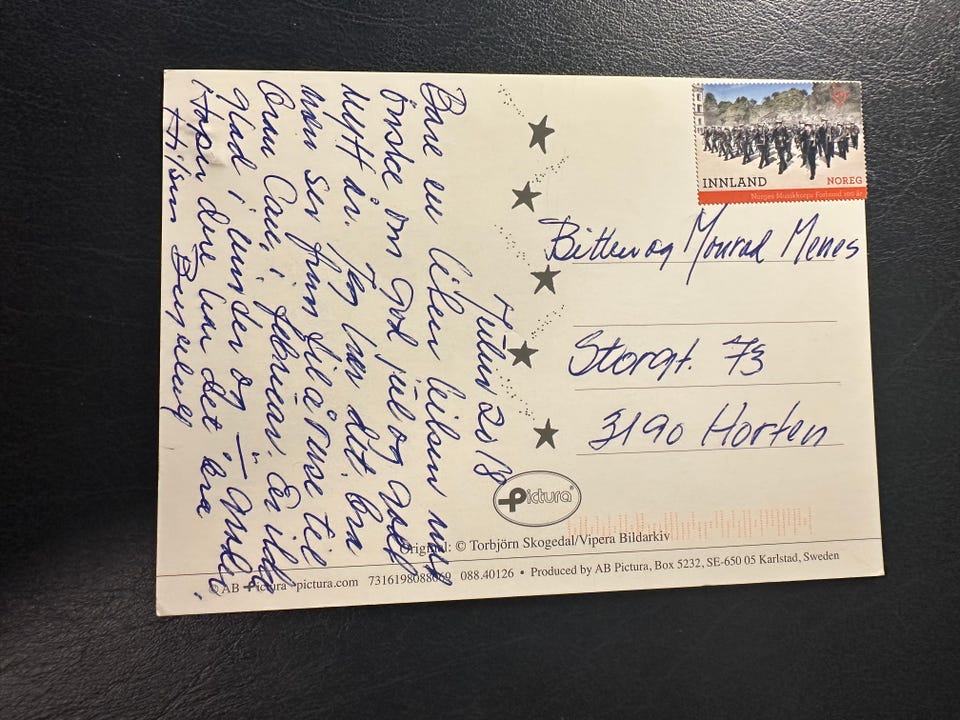 Julen 2018
Bare en liten hilsen med
ønske om God jul og Godt
Nytt år. Jeg har det bra
men ser fram til å reise til
Gran Can. i februar. Er ikke
glad i vinder og
Håper dere har det bra
Hilsen
INNLAND NOREG
Norges Musikkorps Forbund 100 år
og Monrad Menes
Storgt. 73
3190 Horten
Pictura®
Original: © Torbjörn Skogedal/Vipera Bildarkiv
© AB Pictura pictura.com 7316198088069 088.40126 • Produced by AB Pictura, Box 5232, SE-650 05 Karlstad, Sweden